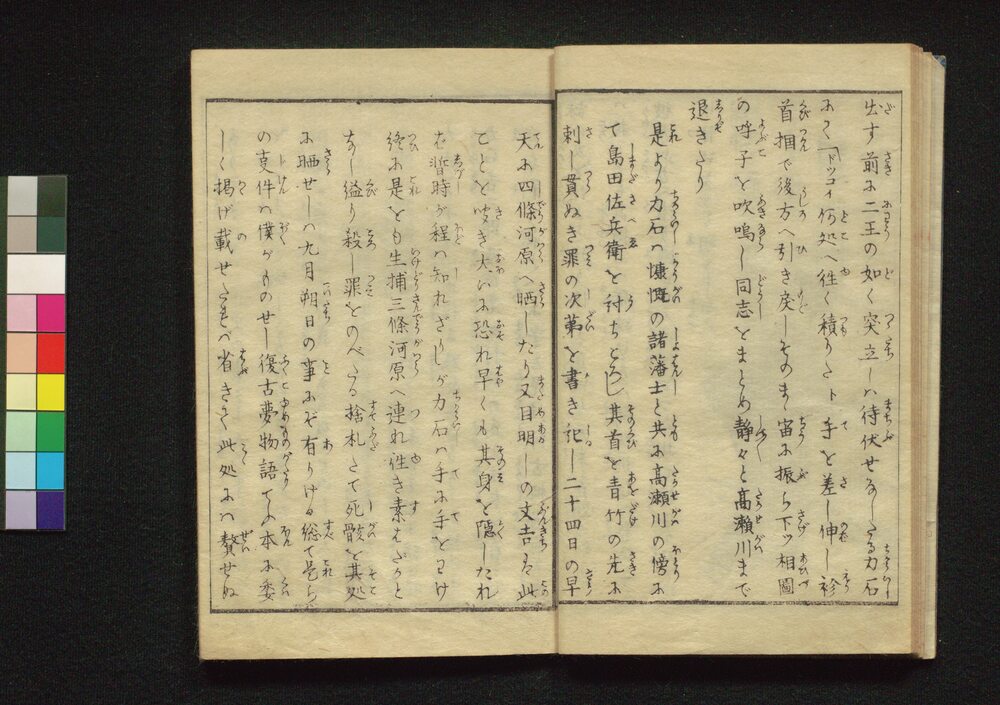 出す前に二王の如く突立しハ待伏せなしたる力石
にて「ドツコイ何処へ往く積りだト手を差し伸し衫
首掴で後方へ引き戻しそのまゝ宙に振ら下ツ相圖
の呼子を吹鳴し同志をまとめ静々と高瀬川まで
退きたり
是より力石ハ慷慨の諸藩士と共に高瀬川の傍に
て島田佐兵衛を討ちとりし其首を青竹の先に
刺し貫ぬき罪の次第を書き記し二十四日の早
天に四條河原へ晒したり又目明しの文吉ハ此
ことを聞き大いに恐れ早くも其身を隠したれ
ば暫時が程ハ知れざりしが力石ハ手に手をわけ
終に是をも生捕三條河原へ連れ往き素はだかと
なし縊り殺し罪をのべたる捨札たて死骸を其処
に晒せしハ九月朔日の事にぞ有りける総て是ら
の支件ハ僕がものせし復古夢物語てふ本に委
しく掲げ載せたれバ省きて此処にハ贅せぬ